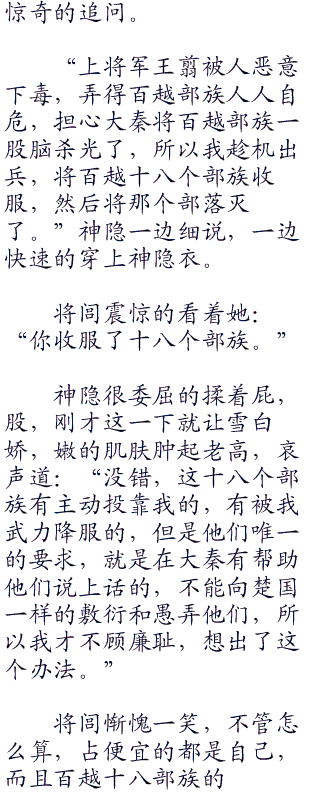 惊奇的追问。
“上将军王翦被人恶意
下毒，弄得百越部族人人自
危，担心大秦将百越部族一
股脑杀光了，所以我趁机出
兵，将百越十八个部族收
服，然后将那个部落灭
了。”神隐一边细说，一边
快速的穿上神隐衣。
将闾震惊的看着她：
“你收服了十八个部族。”
神隐很委屈的揉着屁，
股，刚才这一下就让雪白
娇，嫩的肌肤肿起老高，哀
声道：“没错，这十八个部
族有主动投靠我的，有被我
武力降服的，但是他们唯一
的要求，就是在大秦有帮助
他们说上话的，不能向楚国
一样的敷衍和愚弄他们，所
以我才不顾廉耻，想出了这
个办法。”
将闾惭愧一笑，不管怎
么算，占便宜的都是自己，
而且百越十八部族的